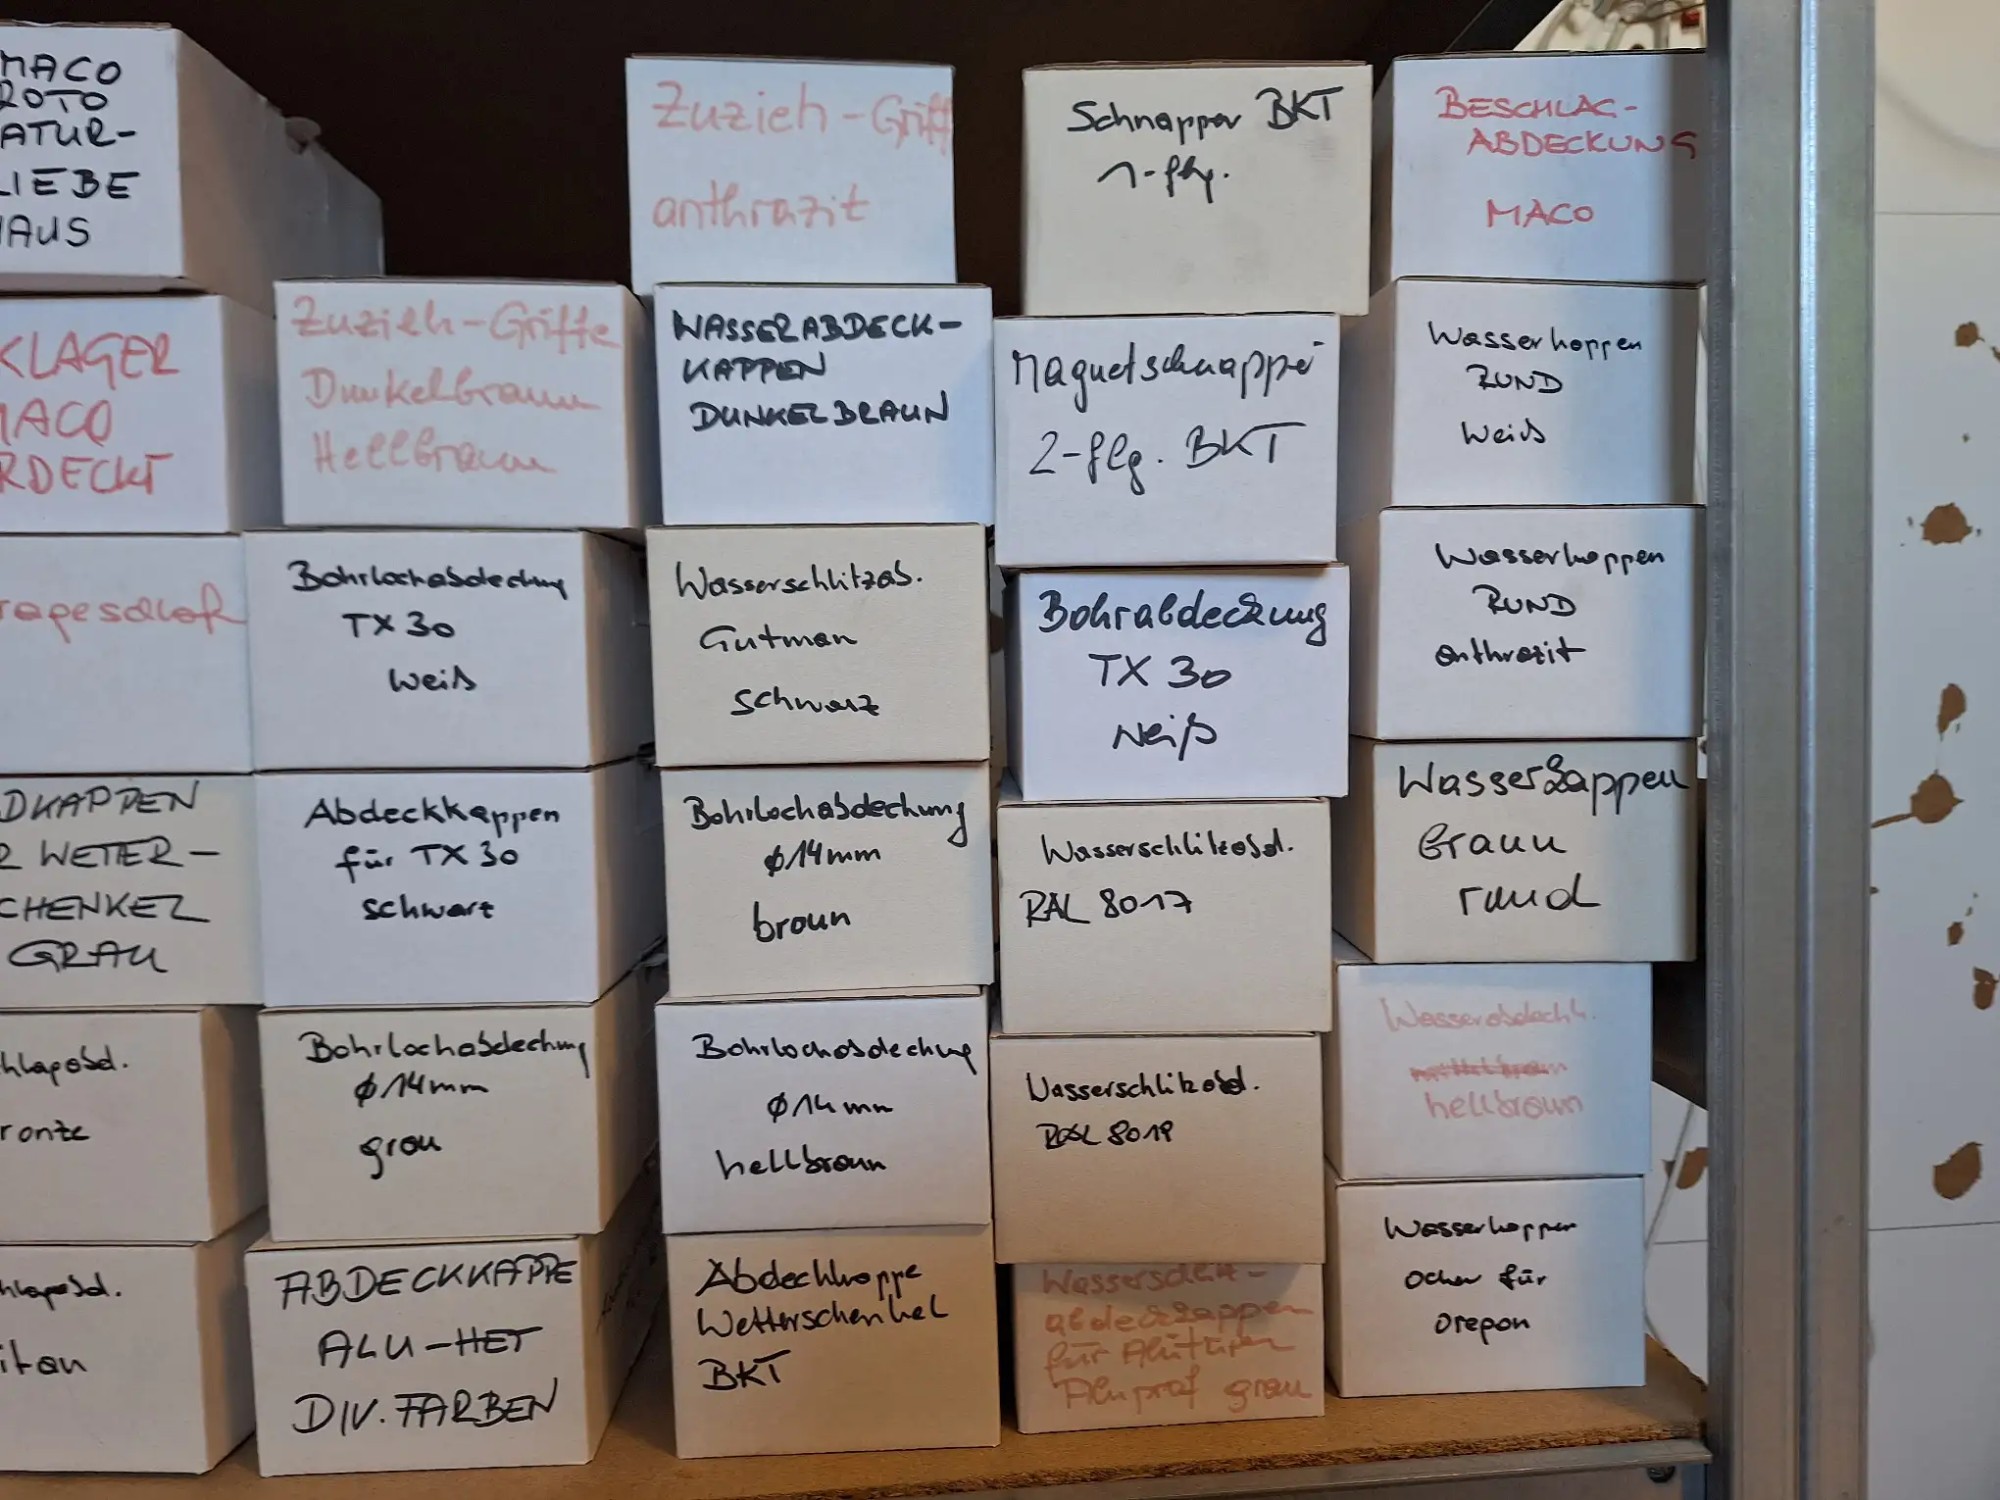 MACO
ROTO
ATUR-
LIEBE
HAUS
KLAGER
MACO
RDECKT
DKAPPEN
R WETTER-
CHENKEL
GRAU
hlagabd.
ronze
hlagabd.
itan
Zuzieh-Griffe
Dunkelbraun
Hellbraun
Bohrlochabdeckung
TX 30
weiß
Abdeckkappen
für TX 30
schwarz
Bohrlochabdeckung
ϕ14mm
grau
ABDECKKAPPE
ALU-HET
DIV. FARBEN
Zuzieh-Griff
anthrazit
WASSERABDECK-
KAPPEN
DUNKELBRAUN
Wasserschlitzab.
Gutman
schwarz
Bohrlochabdeckung
ϕ14mm
braun
Bohrlochabdeckung
ϕ14mm
hellbraun
Abdeckkappe
Wetterschenkel
BKT
Schnapper BKT
1-flg.
Magnetschnapper
2-flg. BKT
Bohrabdeckung
TX 30
weiß
Wasserschlitzabd.
RAL 8017
Wasserschlitzabd.
RAL 8019
Wasserschlitz-
abdeckkappen
für Alutüren
Aluprof grau
BESCHLAG-
ABDECKUNG
MACO
Wasserkappen
RUND
weiß
Wasserkappen
RUND
anthrazit
Wasserkappen
braun
rund
Wasserabdeckk.
hellbraun
Wasserkappen
ocker für
oregon